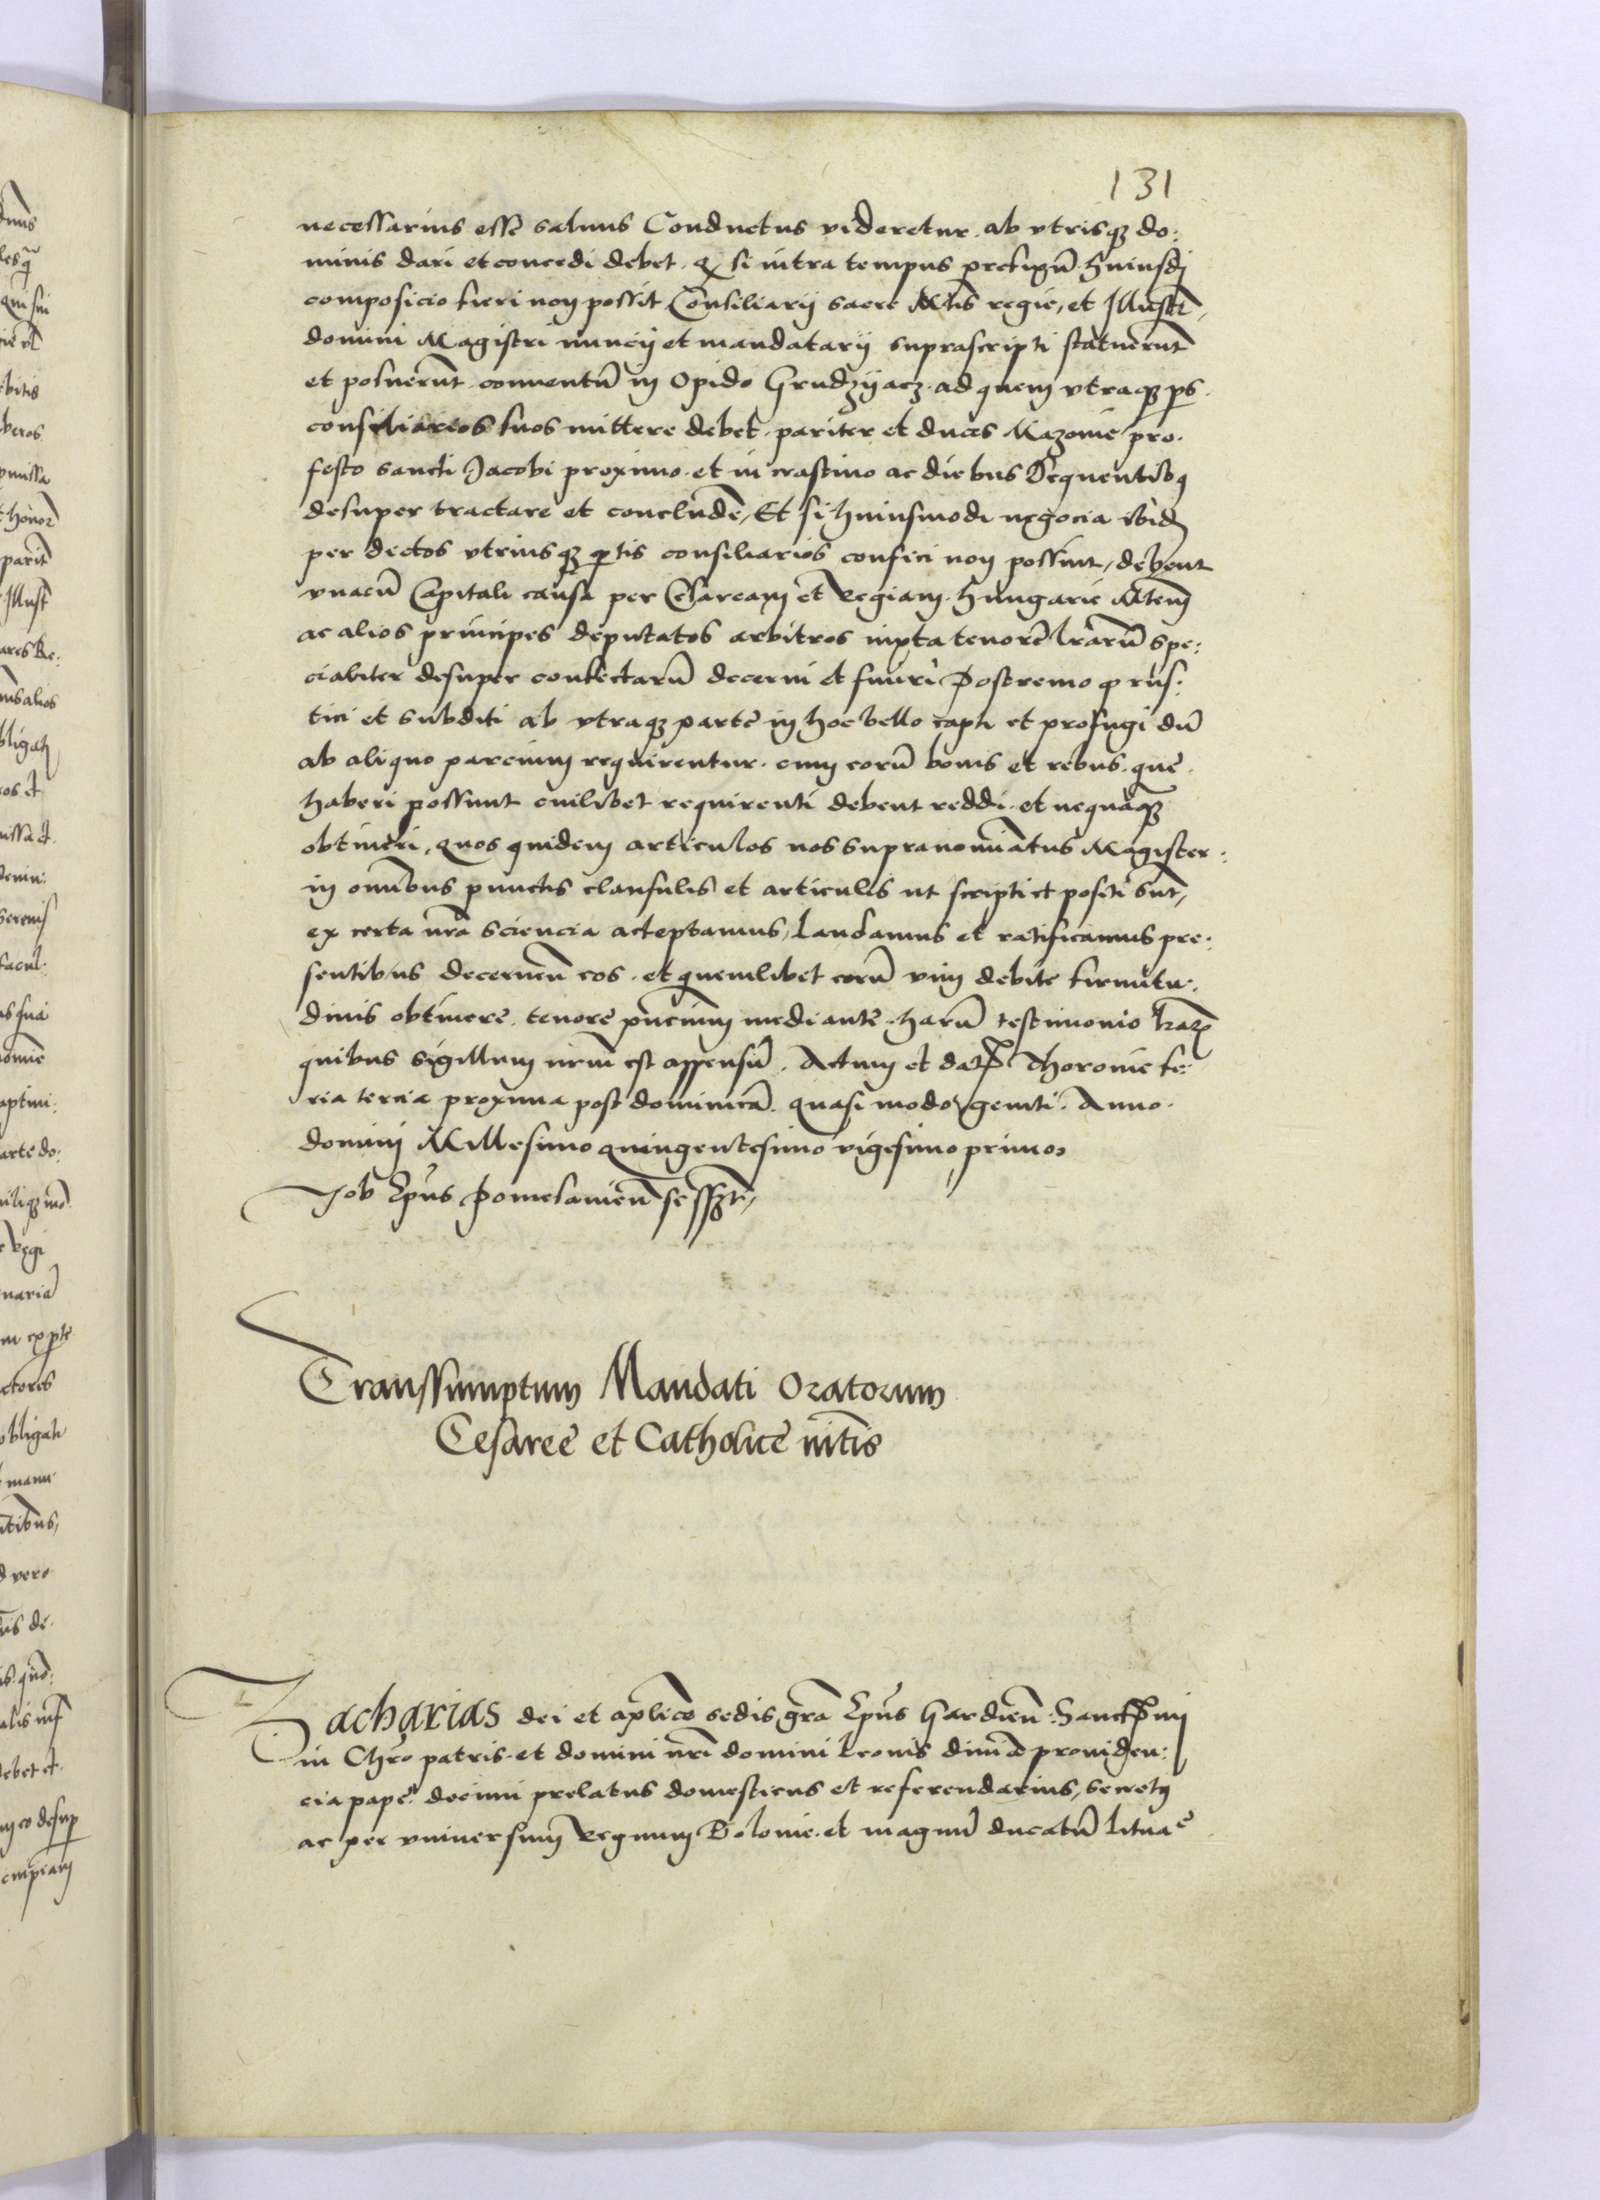 131
necessarius esse saluus Conductus videretur. ab vtrisqz do:
minis dari et concedi debet. Q si intra tempus prefixū. huiusdj
composicio fieri non possit Consiliarij sacre Mtis regie, et Illustr̄,
domini Magistri nuncij et mandatarij suprascripti statuerūt
et posuerūt. conuentū in Opido Grudzyącz. ad quem vtraqz ps.
consiliarios suos mittere debet. pariter et duces Mazouie pro.
festo sancti Jacobi proximo. et in crastino ac diebus Sequentibq
desuper tractare et concludē, Et si huiusmodi negocia ibid
per dictos vtriusqz ptis consiliarios confici non possint, debent
vnacū Capitali causa per Cesaream et Regiam. Hungarie Mtem
ac alios principes deputatos arbitros iuxta tenorē lrarū spe:
cialiter desuper confectarū decerni et finiri Postremo q rus:
tici et subditi ab vtraqz parte in hoc bello capti et profugi dū
ab aliquo parcium requirentur. cum eorū bonis et rebus. que.
haberi possunt cuilibet requirenti debent reddi. et nequāqz
obtineri, quos quidem articulos nos supranominatus Magister.
in omibus punctis clausulis et articulis ut scripti et positi sūt,
ex certa nra sciencia acceptamus, Laudamus et ratificamus pre:
sentibus decernen eos. et quemlibet eorū vim debite firmitu.
dinis obtinere. tenore pncium mediante. harū testimonio lrarz
quibus sigillum nrm est appensū. Actum et datz Thoronie fe:
ria tercia proxima post dominicā. quasi modo geniti. Anno.
domini Millesimo quingentesimo vigesimo primo
Job Epus Pomesanien̄ sesszt,
Transsumptum Mandati Oratorum
Cesaree et Catholice mtis
Zacharias dei et aplice sedis gra Epus Gardien̄. Sanctzmi
in Chro patris. et domini nri domini Leonis diuīa prouiden:
cia pape. decimi prelatus domesticus et referendarius, secretq
ac per vniuersum Regnum Polonie. et magnū ducatū lituae